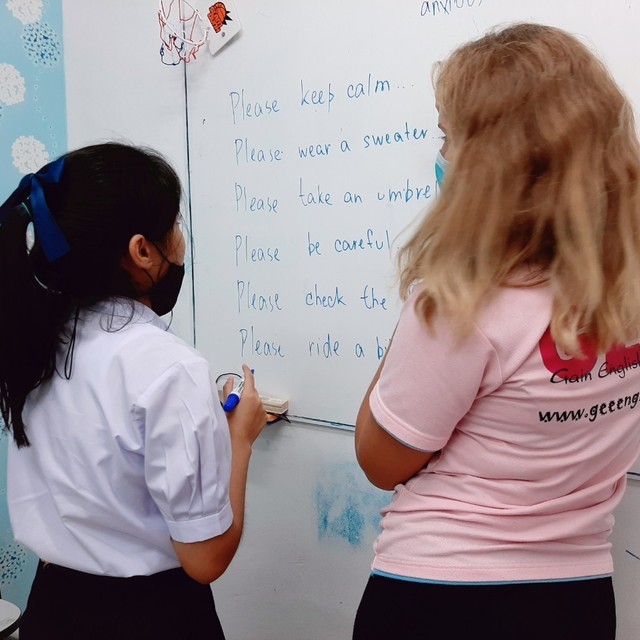 anxious
Please keep calm...
Please wear a sweater
Please take an
Please be careful
Please check the
Please ride a
Gain English
www.geeeng